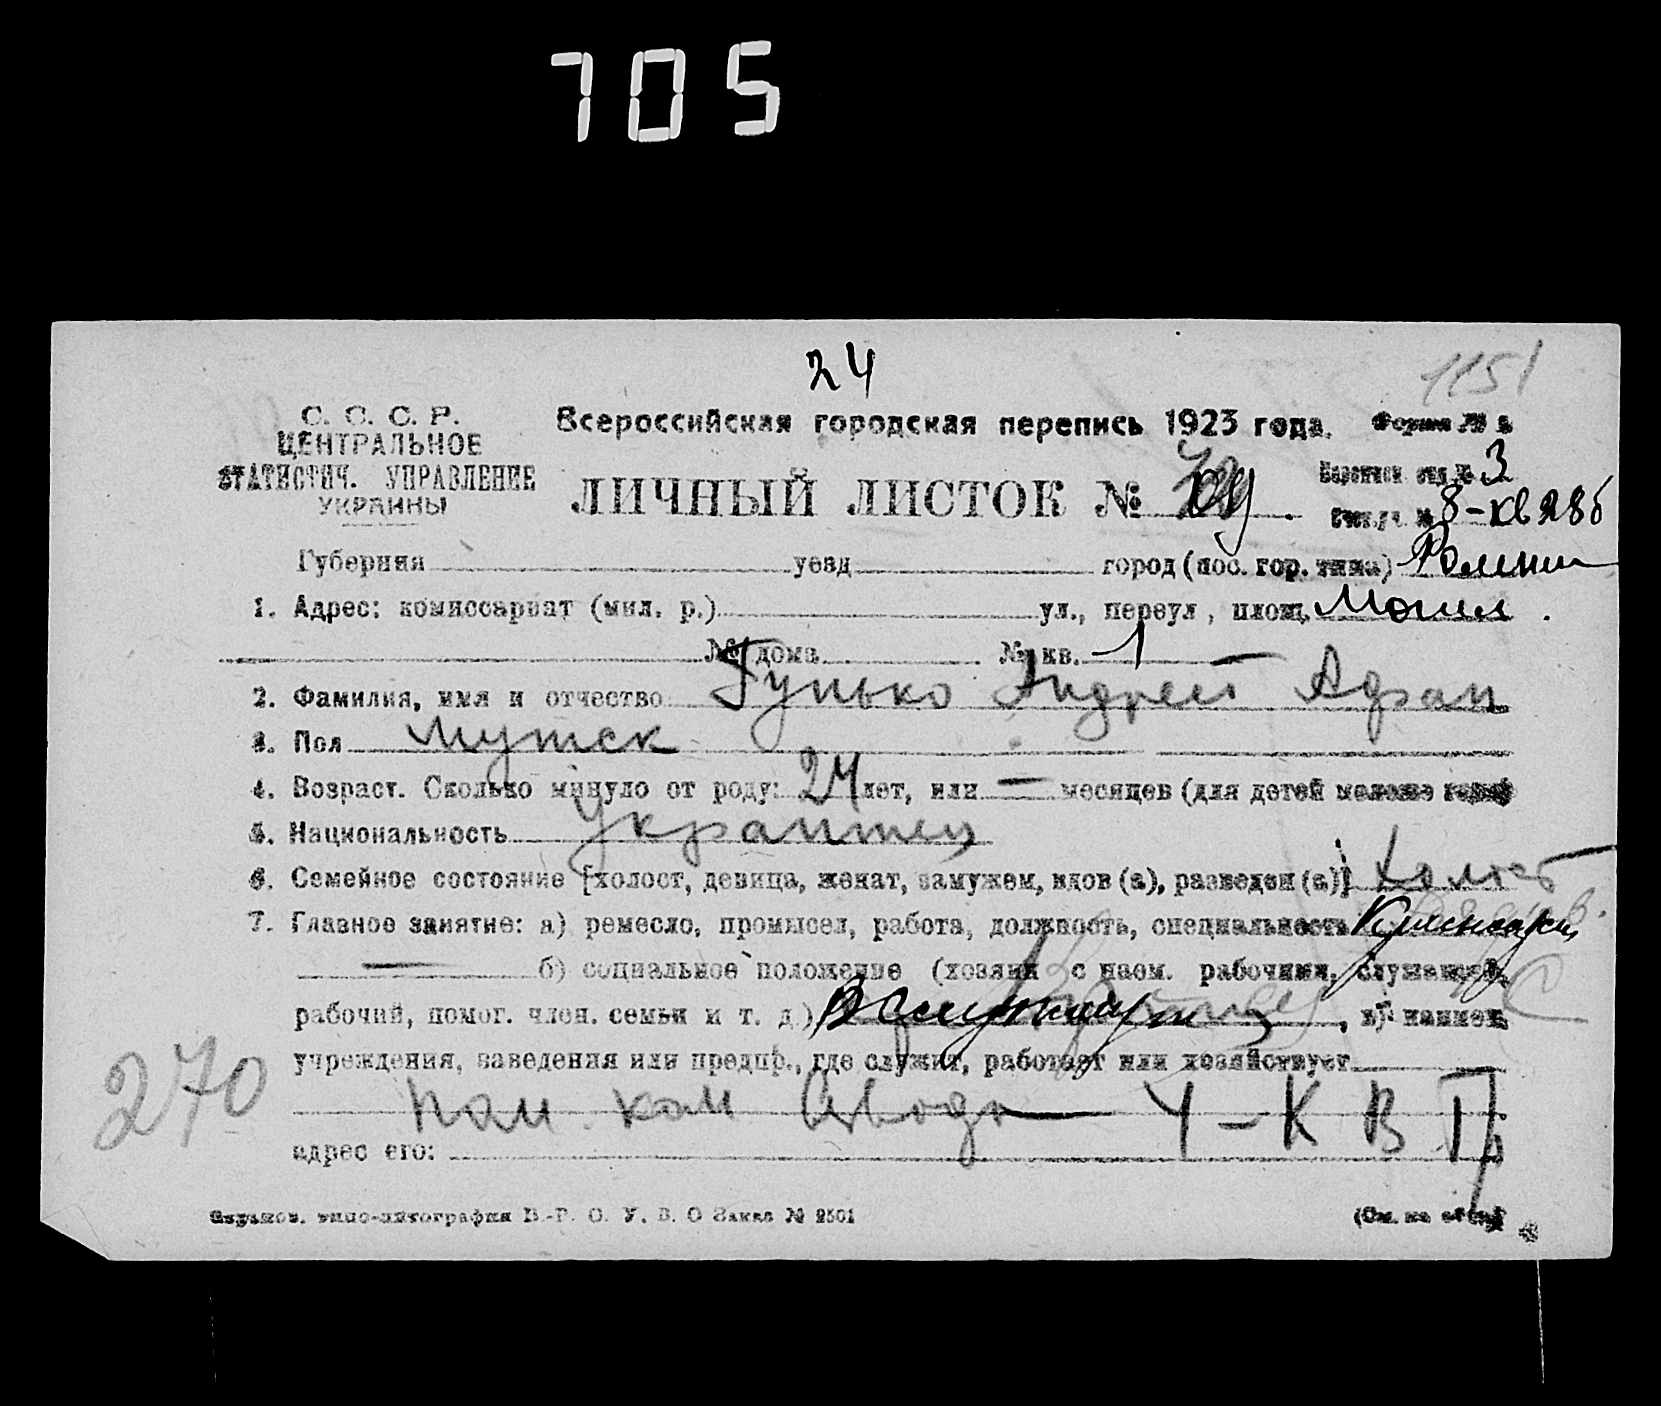 705
24
1151
С. С. С. Р.
ЦЕНТРАЛЬНОЕ
СТАТИСТИЧ. УПРАВЛЕНИЕ
УКРАИНЫ
Всероссийская городская перепись 1923 года.
Форма №
ЛИЧНЫЙ ЛИСТОК №
№ 3
8-кв 28б
Губерния уезд город (пос. гор. типа) Ромни
1. Адрес: комиссариат (мил. р.) ул., переул, площ. Могил.
№ дома № кв. 1
2. Фамилия, имя и отчество Гунько Андрей Афан
3. Пол Мужск
4. Возраст. Сколько минуло от роду: 24 лет, или — месяцев (для детей моложе года)
5. Национальность Украинец
6. Семейное состояние [холост, девица, женат, замужем, вдов (а), разведен (а)] Холост
7. Главное занятие: а) ремесло, промысел, работа, должность, специальность
б) социальное положение (хозяин с наем. рабочими, служащий,
рабочий, помог. член. семьи и т. д.) , в) наимен.
учреждения, заведения или предпр., где служит, работает или хозяйствует
270
Пом. ком Взвода — 4 - К В П
адрес его:
типо-литография В.-Р. О. У. В. О Заказ № 2501
(См. на